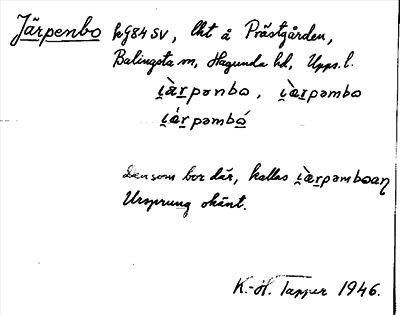 Järpenbo kG84SV, lht å Prästgården,
Balingsta sn, Hagunda hd, Upps. l.
i̯ä̀r̲pənbo, i̯ä̀r̲pəmbo
i̯ä́r̲pəmbó̲
Den som bor där, kallas i̯ä̀r̲pəmboaɳ
Ursprung okänt.
K.-H. Tapper 1946.